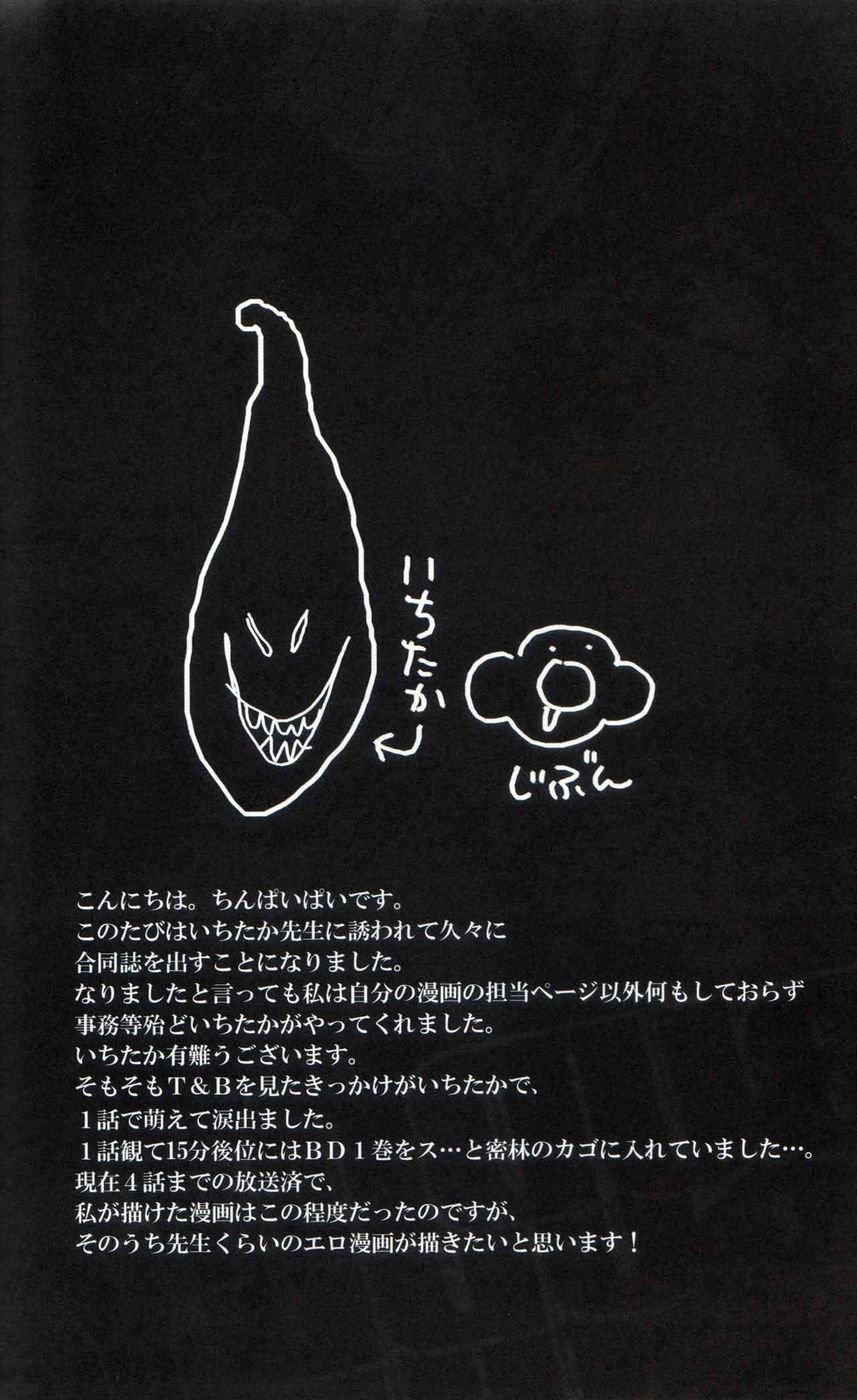 いちたか
じぶん
こんにちは。ちんぱいぱいです。
このたびはいちたか先生に誘われて久々に
合同誌を出すことになりました。
なりましたと言っても私は自分の漫画の担当ページ以外何もしておらず
事務等殆どいちたかがやってくれました。
いちたか有難うございます。
そもそもＴ＆Ｂを見たきっかけがいちたかで、
１話で萌えて涙出ました。
１話観て15分後位にはＢＤ１巻をス…と密林のカゴに入れていました…。
現在４話までの放送済で、
私が描けた漫画はこの程度だったのですが、
そのうち先生くらいのエロ漫画が描きたいと思います！